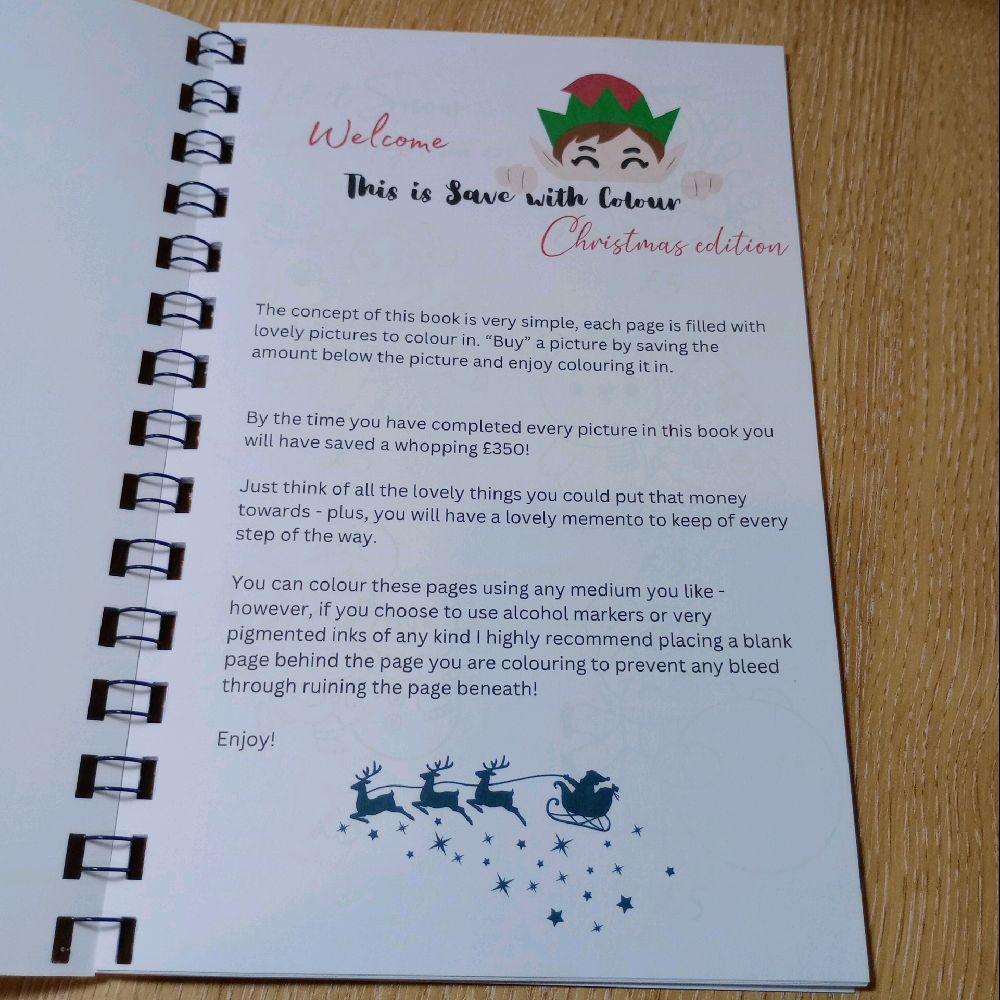 Welcome
This is Save with Colour
Christmas edition
The concept of this book is very simple, each page is filled with
lovely pictures to colour in. “Buy” a picture by saving the
amount below the picture and enjoy colouring it in.
By the time you have completed every picture in this book you
will have saved a whopping £350!
Just think of all the lovely things you could put that money
towards - plus, you will have a lovely memento to keep of every
step of the way.
You can colour these pages using any medium you like -
however, if you choose to use alcohol markers or very
pigmented inks of any kind I highly recommend placing a blank
page behind the page you are colouring to prevent any bleed
through ruining the page beneath!
Enjoy!